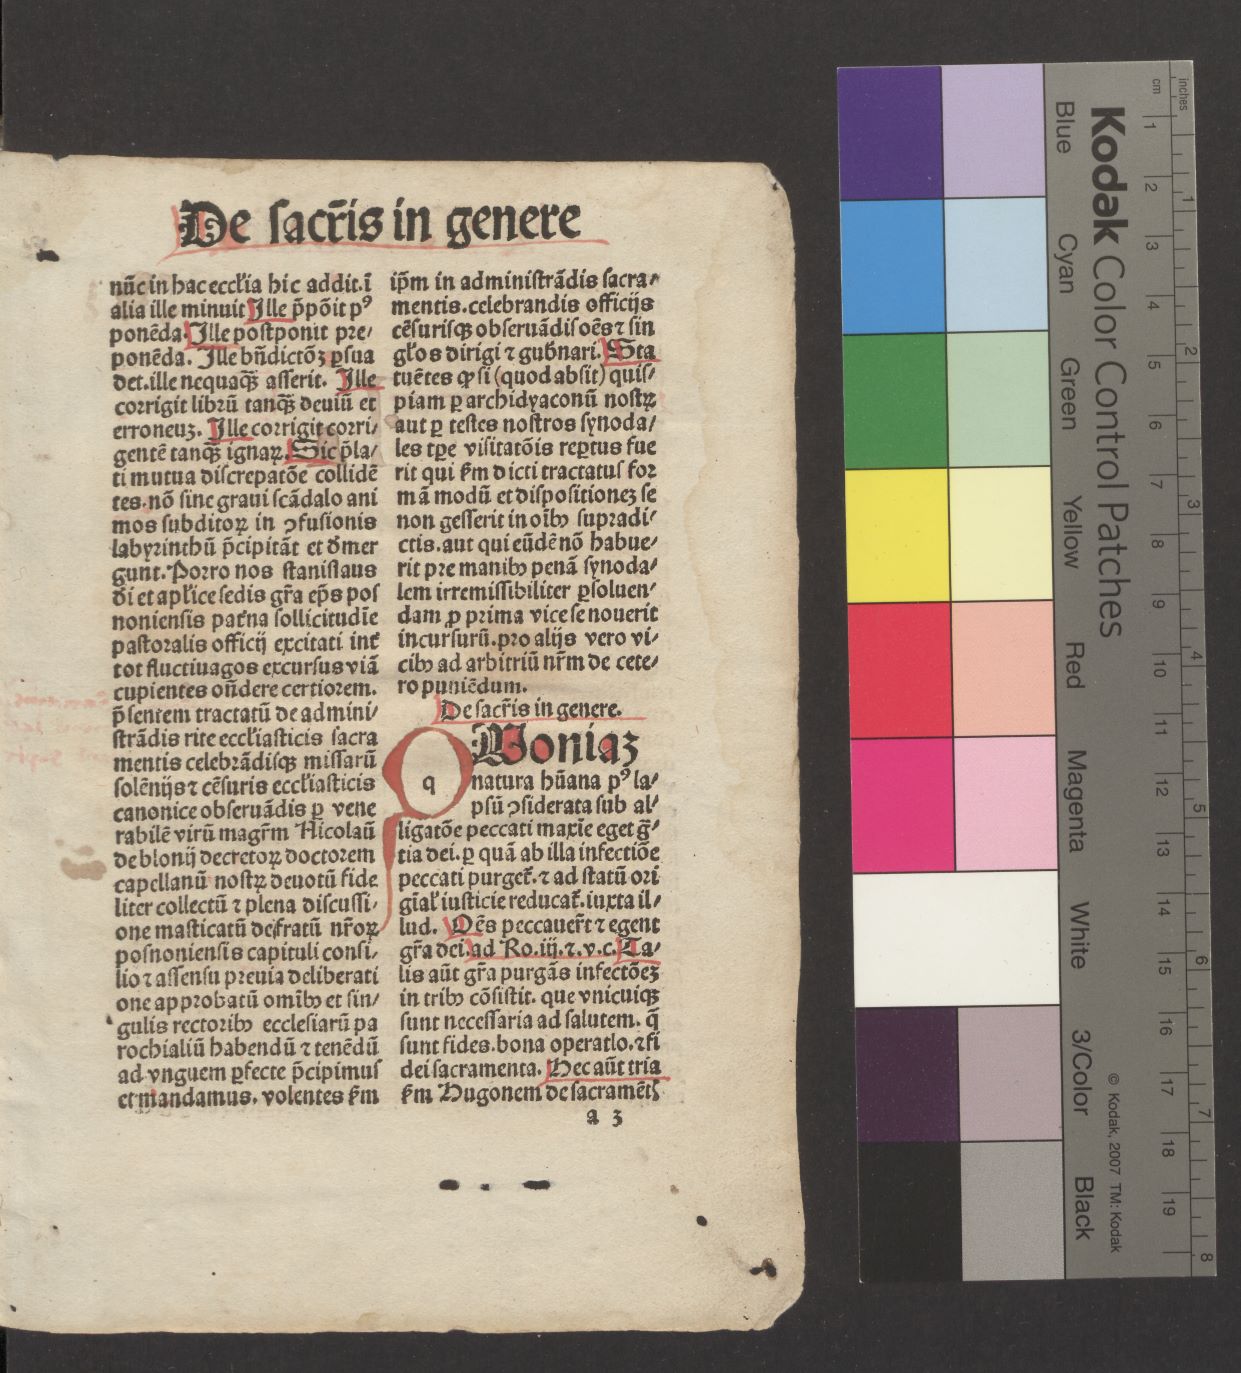 De sacr̃is in genere
nũc in hac eccl'ia hic addit. ĩ
alia ille minuit Ille p̃põit pꝰ
ponẽda. Ille postponit pre⸗
ponẽda. Ille bñdictõꝫ ꝑsua
det. ille nequaq̃ꝫ asserit. Ille
corrigit librũ tanq̃ꝫ deuiũ et
erroneuꝫ. Ille corrigit corri⸗
gentẽ tanq̃ꝫ ignaꝝ. Sic p̃la⸗
ti mutua discrepatõe collidẽ
tes. nõ sine graui scãdalo ani
mos subditoꝝ in ꝯfusionis
labyrinthũ p̃cipitãt et d̃mer
gunt. Porro nos stanislaus
d̃i et apl'ice sedis gr̃a ep̃s pos
noniensis pat'na sollicitudĩe
pastoralis officij excitati int'
tot fluctiuagos excursus viã
cupientes oñdere certiorem.
p̃sentem tractatũ de admini⸗
strãdis rite eccl'iasticis sacra
mentis celebrãdisqꝫ missarũ
solẽnijs ⁊ cẽsuris eccl'iasticis
canonice obseruãdis ꝑ vene
rabilẽ virũ magr̃m Nicolaũ
de blonij decretoꝝ doctorem
capellanũ nostꝝ deuotũ fide
liter collectũ ⁊ plena discussi⸗
one masticatũ defratũ nr̃oꝝ
posnoniensis capituli consi⸗
lio ⁊ assensu preuia deliberati
one approbatũ omĩbꝫ et sin⸗
gulis rectoribꝫ ecclesiarũ pa
rochialiũ habendũ ⁊ tenẽdũ
ad vnguem ꝑfecte p̃cipimus
et mandamus. volentes ẜm
ip̃m in administrãdis sacra⸗
mentis. celebrandis officijs
cẽsurisqꝫ obseruãdis oẽs ⁊ sin
gl'os dirigi ⁊ gub'nari. Sta
tuẽtes ꝙ si (quod absit) quis⸗
piam ꝑ archidyaconũ nostꝝ
aut ꝑ testes nostros synoda⸗
les tꝑe visitatõis reꝑtus fue
rit qui ẜm dicti tractatus for
mã modũ et dispositioneꝫ se
non gesserit in oĩbꝫ supradi⸗
ctis. aut qui eũdẽ nõ habue⸗
rit pre manibꝫ penã synoda⸗
lem irremissibiliter ꝑsoluen⸗
dam ꝓ prima vice se nouerit
incursurũ. pro alijs vero vi⸗
cibꝫ ad arbitriũ nr̃m de cete⸗
ro puniẽdum.
De sacr̃is in genere.
q Woniaꝫ
natura hũana pꝰ la⸗
psũ ꝯsiderata sub al⸗
ligatõe peccati maxĩe eget g̃⸗
tia dei. ꝑ quã ab illa infectiõe
peccati purget'. ⁊ ad statũ ori
gĩal' iusticie reducat'. iuxta il⸗
lud. Oẽs peccauer̃t ⁊ egent
gr̃a dei. ad Ro. iij. ⁊. v. c. Ta⸗
lis aũt gr̃a purgãs infectõeꝫ
in tribꝫ cõsistit. que vnicuiqꝫ
sunt necessaria ad salutem. q̃
sunt fides. bona operatlo. ⁊ fi
dei sacramenta. Hec aũt tria
ẜm Hugonem de sacramẽtꝭ
a 3
Kodak Color Control Patches
Blue
Cyan
Green
Yellow
Red
Magenta
White
3/Color
Black
© Kodak, 2007 TM: Kodak
cm 1 2 3 4 5 6 7 8 9 10 11 12 13 14 15 16 17 18 19
inches 1 2 3 4 5 6 7 8